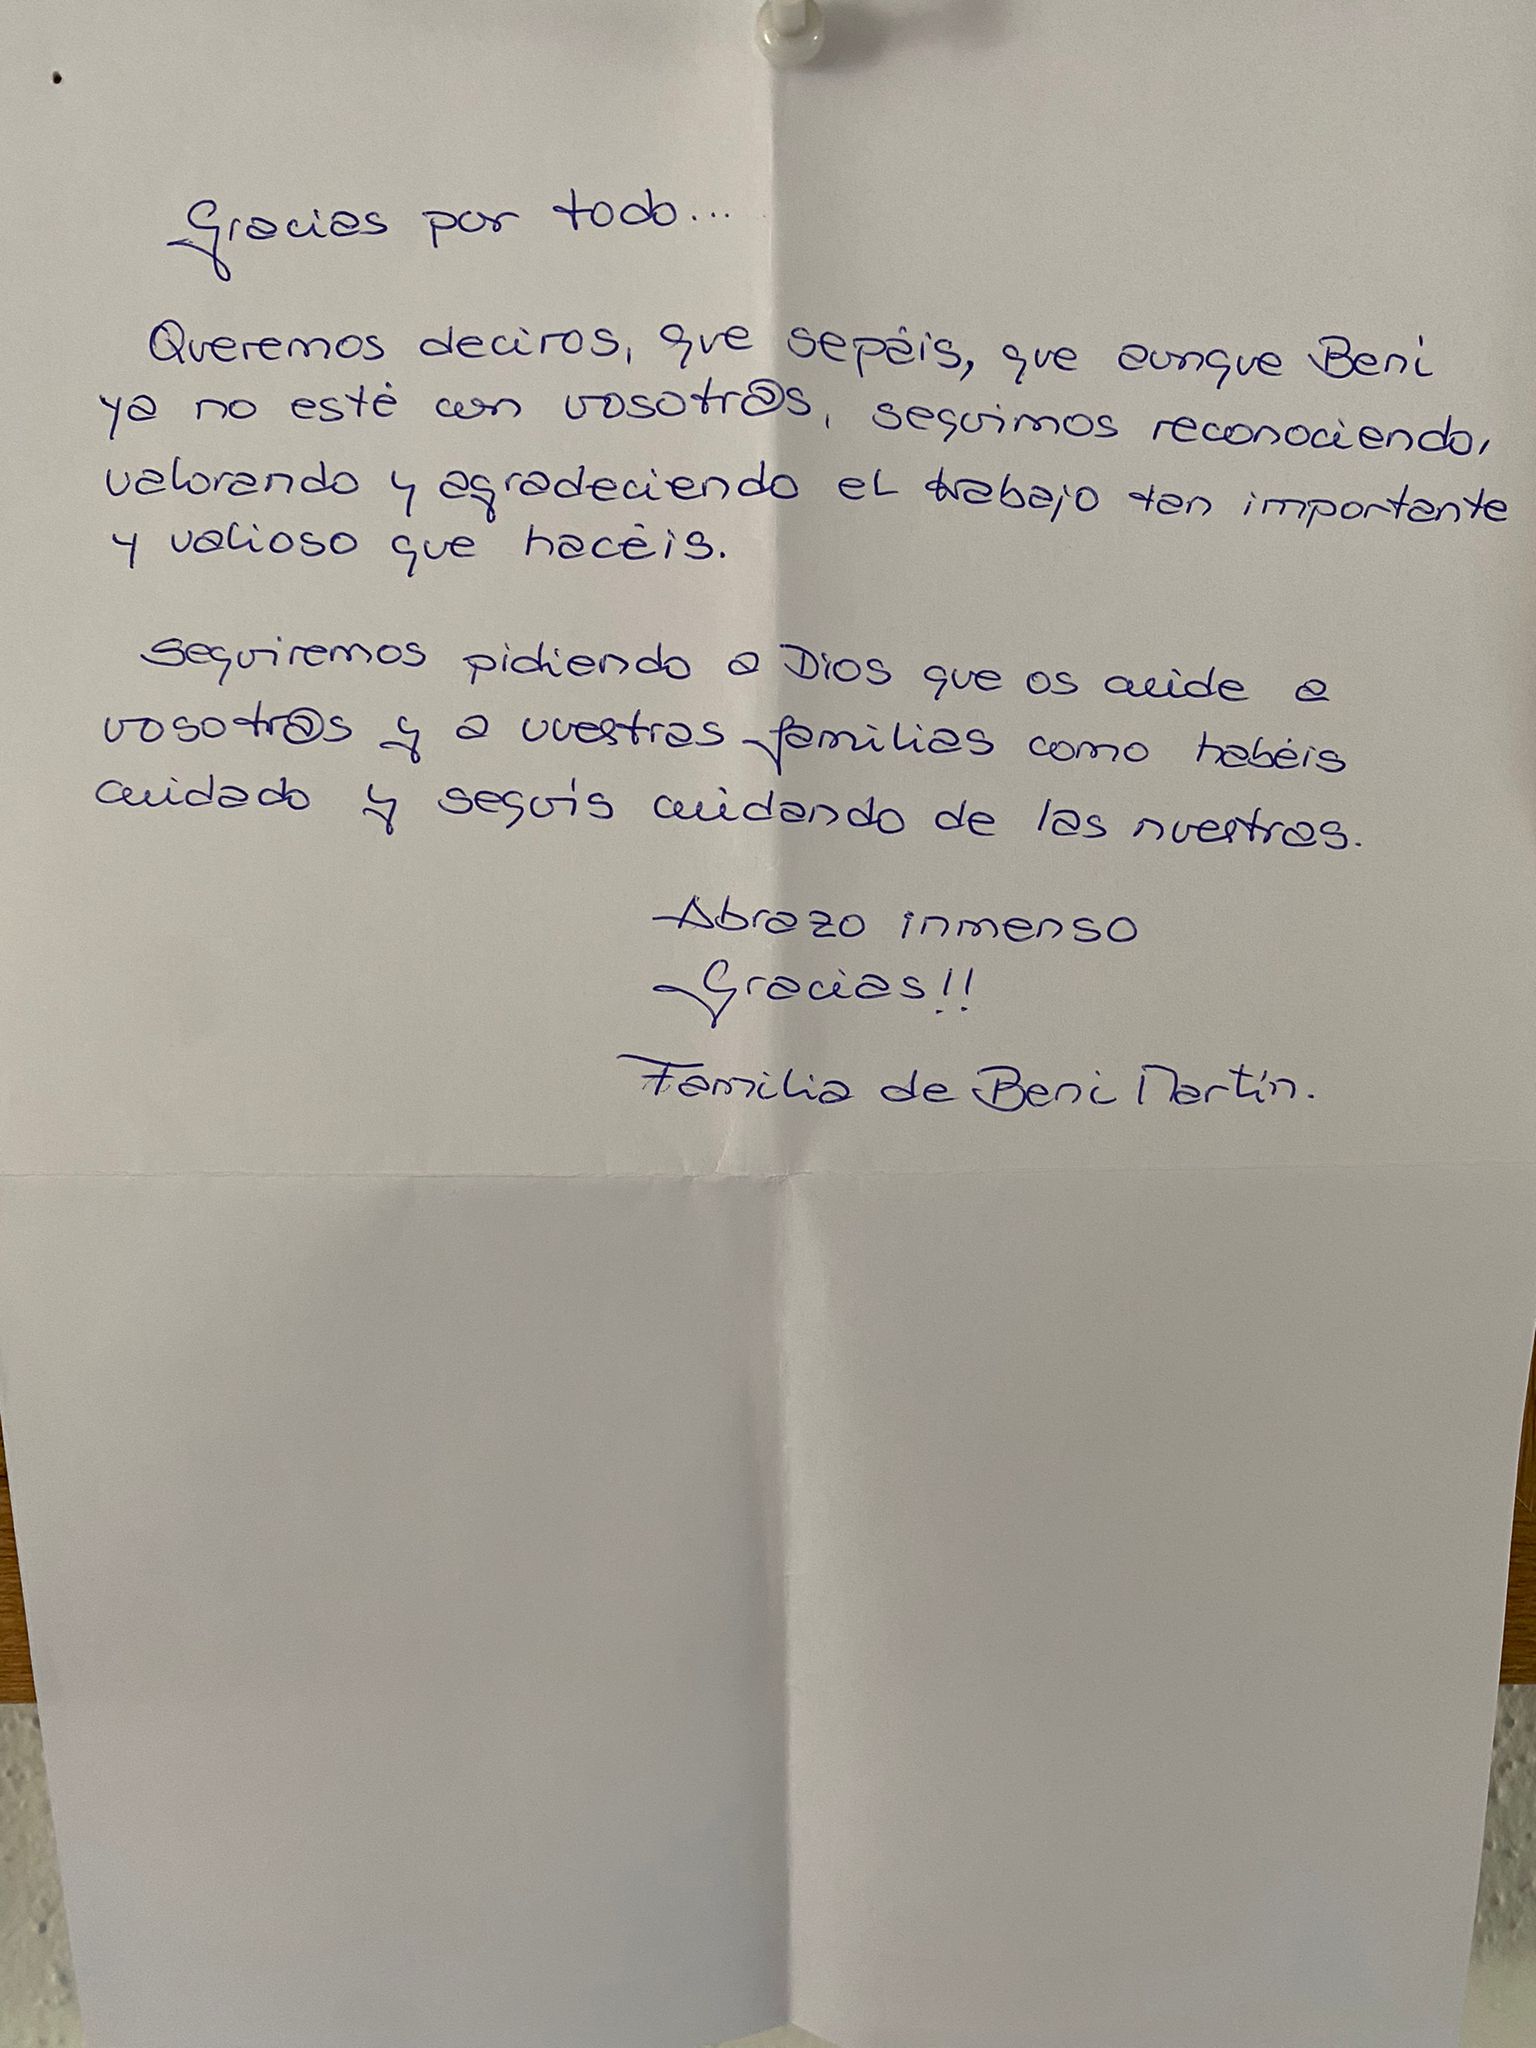 Gracias por todo...
Queremos deciros, que sepáis, que aunque Beni
ya no esté con vosotr@s, seguimos reconociendo,
valorando y agradeciendo el trabajo tan importante
y valioso que hacéis.
Seguiremos pidiendo a Dios que os cuide a
vosotr@s y a vuestras familias como habéis
cuidado y seguís cuidando de las nuestras.
Abrazo inmenso
Gracias!!
Familia de Beni Martín.